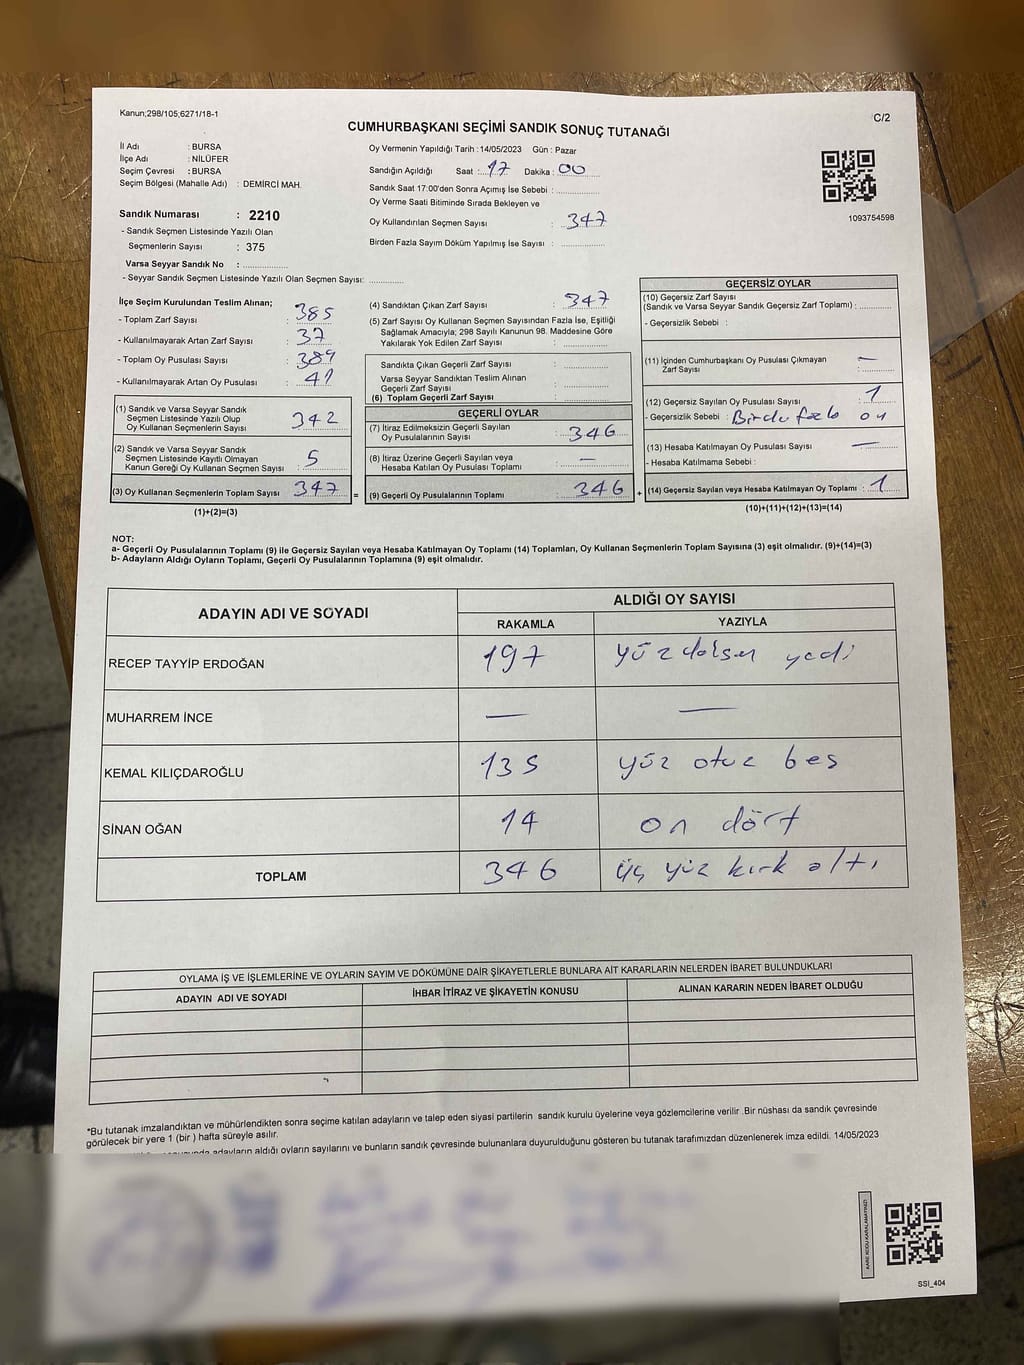 Kanun;298/105;6271/18-1
C/2
CUMHURBAŞKANI SEÇİMİ SANDIK SONUÇ TUTANAĞI
İl Adı : BURSA
İlçe Adı : NİLÜFER
Seçim Çevresi : BURSA
Seçim Bölgesi (Mahalle Adı) : DEMİRCİ MAH.
Sandık Numarası : 2210
- Sandık Seçmen Listesinde Yazılı Olan
Seçmenlerin Sayısı : 375
Varsa Seyyar Sandık No :
- Seyyar Sandık Seçmen Listesinde Yazılı Olan Seçmen Sayısı:
Oy Vermenin Yapıldığı Tarih :14/05/2023 Gün : Pazar
Sandığın Açıldığı Saat : 17 Dakika : 00
Sandık Saat 17:00'den Sonra Açımış İse Sebebi :
Oy Verme Saati Bitiminde Sırada Bekleyen ve
Oy Kullandırılan Seçmen Sayısı : 347
Birden Fazla Sayım Döküm Yapılmış İse Sayısı :
1093754598
İlçe Seçim Kurulundan Teslim Alınan;
- Toplam Zarf Sayısı : 385
- Kullanılmayarak Artan Zarf Sayısı : 37
- Toplam Oy Pusulası Sayısı : 389
- Kullanılmayarak Artan Oy Pusulası : 41
(1) Sandık ve Varsa Seyyar Sandık
Seçmen Listesinde Yazılı Olup
Oy Kullanan Seçmenlerin Sayısı : 342
(2) Sandık ve Varsa Seyyar Sandık
Seçmen Listesinde Kayıtlı Olmayan
Kanun Gereği Oy Kullanan Seçmen Sayısı : 5
(3) Oy Kullanan Seçmenlerin Toplam Sayısı : 347 =
(1)+(2)=(3)
(4) Sandıktan Çıkan Zarf Sayısı : 347
(5) Zarf Sayısı Oy Kullanan Seçmen Sayısından Fazla İse, Eşitliği
Sağlamak Amacıyla; 298 Sayılı Kanunun 98. Maddesine Göre
Yakılarak Yok Edilen Zarf Sayısı :
Sandıkta Çıkan Geçerli Zarf Sayısı :
Varsa Seyyar Sandıktan Teslim Alınan
Geçerli Zarf Sayısı :
(6) Toplam Geçerli Zarf Sayısı :
GEÇERLİ OYLAR
(7) İtiraz Edilmeksizin Geçerli Sayılan
Oy Pusulalarının Sayısı : 346
(8) İtiraz Üzerine Geçerli Sayılan veya
Hesaba Katılan Oy Pusulası Toplamı : —
(9) Geçerli Oy Pusulalarının Toplamı : 346 +
GEÇERSİZ OYLAR
(10) Geçersiz Zarf Sayısı
(Sandık ve Varsa Seyyar Sandık Geçersiz Zarf Toplamı) :
- Geçersizlik Sebebi :
(11) İçinden Cumhurbaşkanı Oy Pusulası Çıkmayan
Zarf Sayısı : —
(12) Geçersiz Sayılan Oy Pusulası Sayısı : 1
- Geçersizlik Sebebi : Birdu fazla oy
(13) Hesaba Katılmayan Oy Pusulası Sayısı : —
- Hesaba Katılmama Sebebi :
(14) Geçersiz Sayılan veya Hesaba Katılmayan Oy Toplamı : 1
(10)+(11)+(12)+(13)=(14)
NOT:
a- Geçerli Oy Pusulalarının Toplamı (9) ile Geçersiz Sayılan veya Hesaba Katılmayan Oy Toplamı (14) Toplamları, Oy Kullanan Seçmenlerin Toplam Sayısına (3) eşit olmalıdır. (9)+(14)=(3)
b- Adayların Aldığı Oyların Toplamı, Geçerli Oy Pusulalarının Toplamına (9) eşit olmalıdır.
ADAYIN ADI VE SOYADI ALDIĞI OY SAYISI
RAKAMLA YAZIYLA
RECEP TAYYİP ERDOĞAN 197 yüz doksan yedi
MUHARREM İNCE — —
KEMAL KILIÇDAROĞLU 135 yüz otuz beş
SİNAN OĞAN 14 on dört
TOPLAM 346 üç yüz kırk altı
OYLAMA İŞ VE İŞLEMLERİNE VE OYLARIN SAYIM VE DÖKÜMÜNE DAİR ŞİKAYETLERLE BUNLARA AİT KARARLARIN NELERDEN İBARET BULUNDUKLARI
ADAYIN ADI VE SOYADI İHBAR İTİRAZ VE ŞİKAYETİN KONUSU ALINAN KARARIN NEDEN İBARET OLDUĞU
*Bu tutanak imzalandıktan ve mühürlendikten sonra seçime katılan adayların ve talep eden siyasi partilerin sandık kurulu üyelerine veya gözlemcilerine verilir .Bir nüshası da sandık çevresinde
görülecek bir yere 1 (bir ) hafta süreyle asılır.
adayların aldığı oyların sayılarını ve bunların sandık çevresinde bulunanlara duyurulduğunu gösteren bu tutanak tarafımızdan düzenlenerek imza edildi. 14/05/2023
KARE KODU KARALAMAYINIZ!
SSI_404